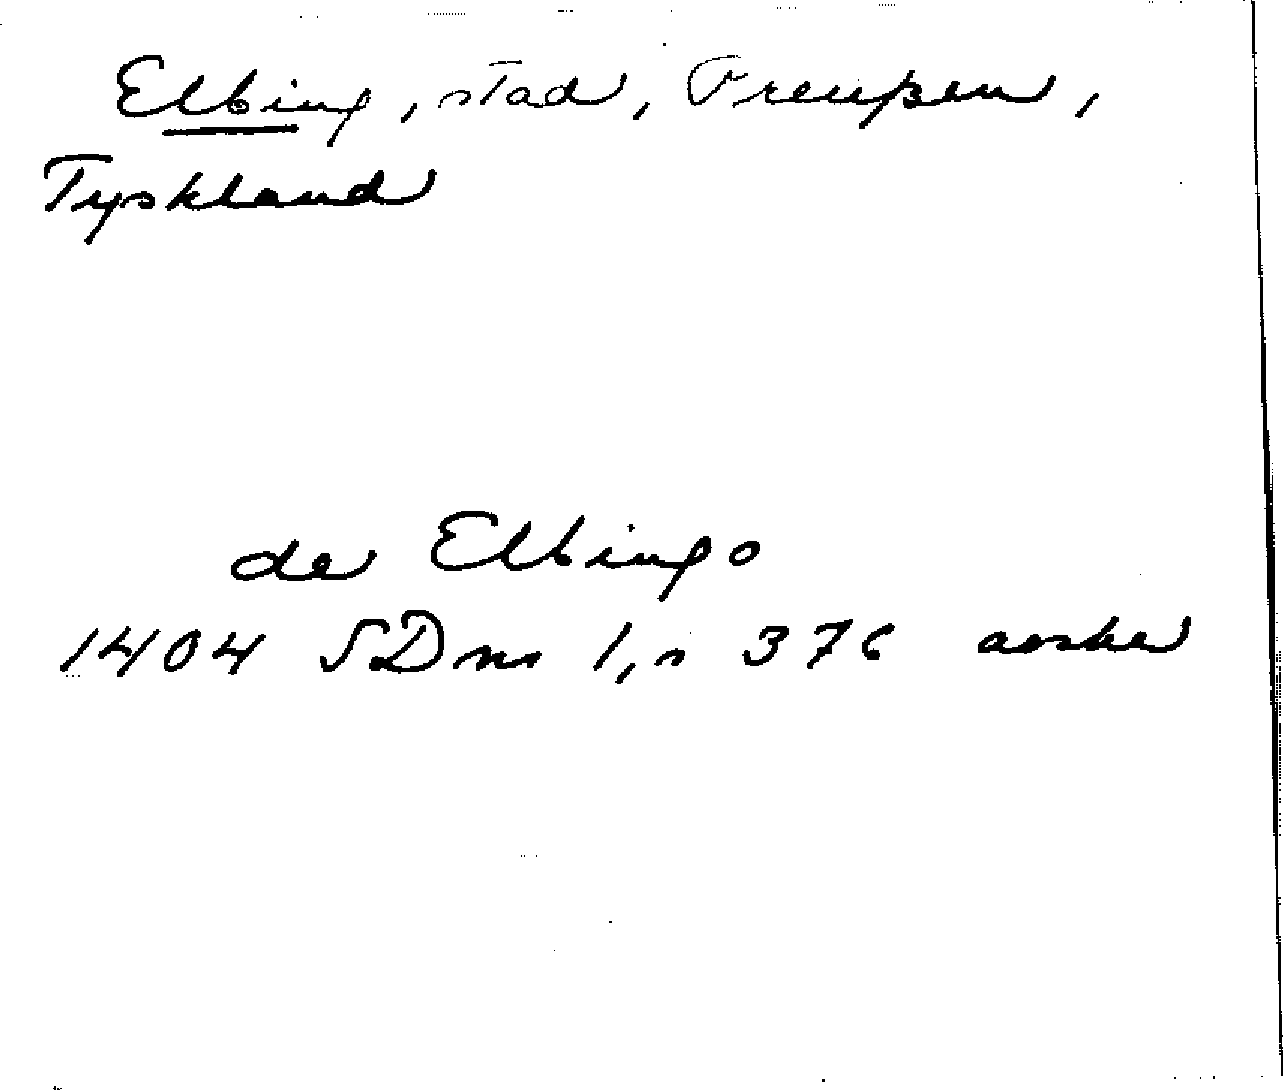 Elbing, stad, Preußen,
Tyskland
de Elbingo
1404 SDns 1, s 376 avskr